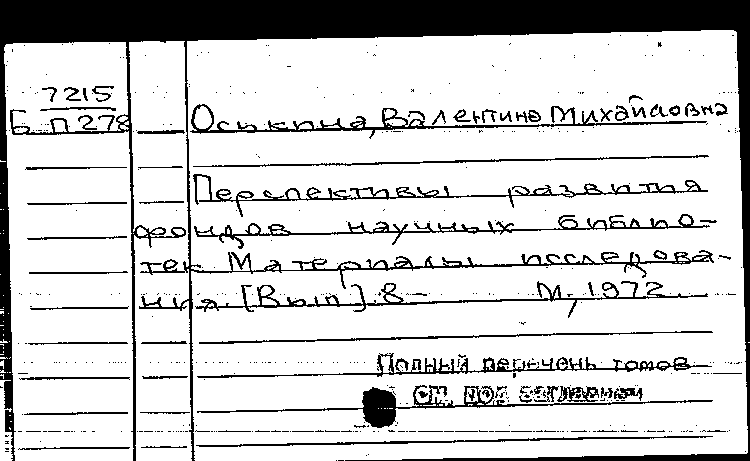 7215
Б П278
Оськина, Валентина Михайловна
Перспективы развития
фондов научных библио-
тек Материалы исследова-
ния. [Вып]. 8- М, 1972.
Полный перечень томов
см. под заглавием